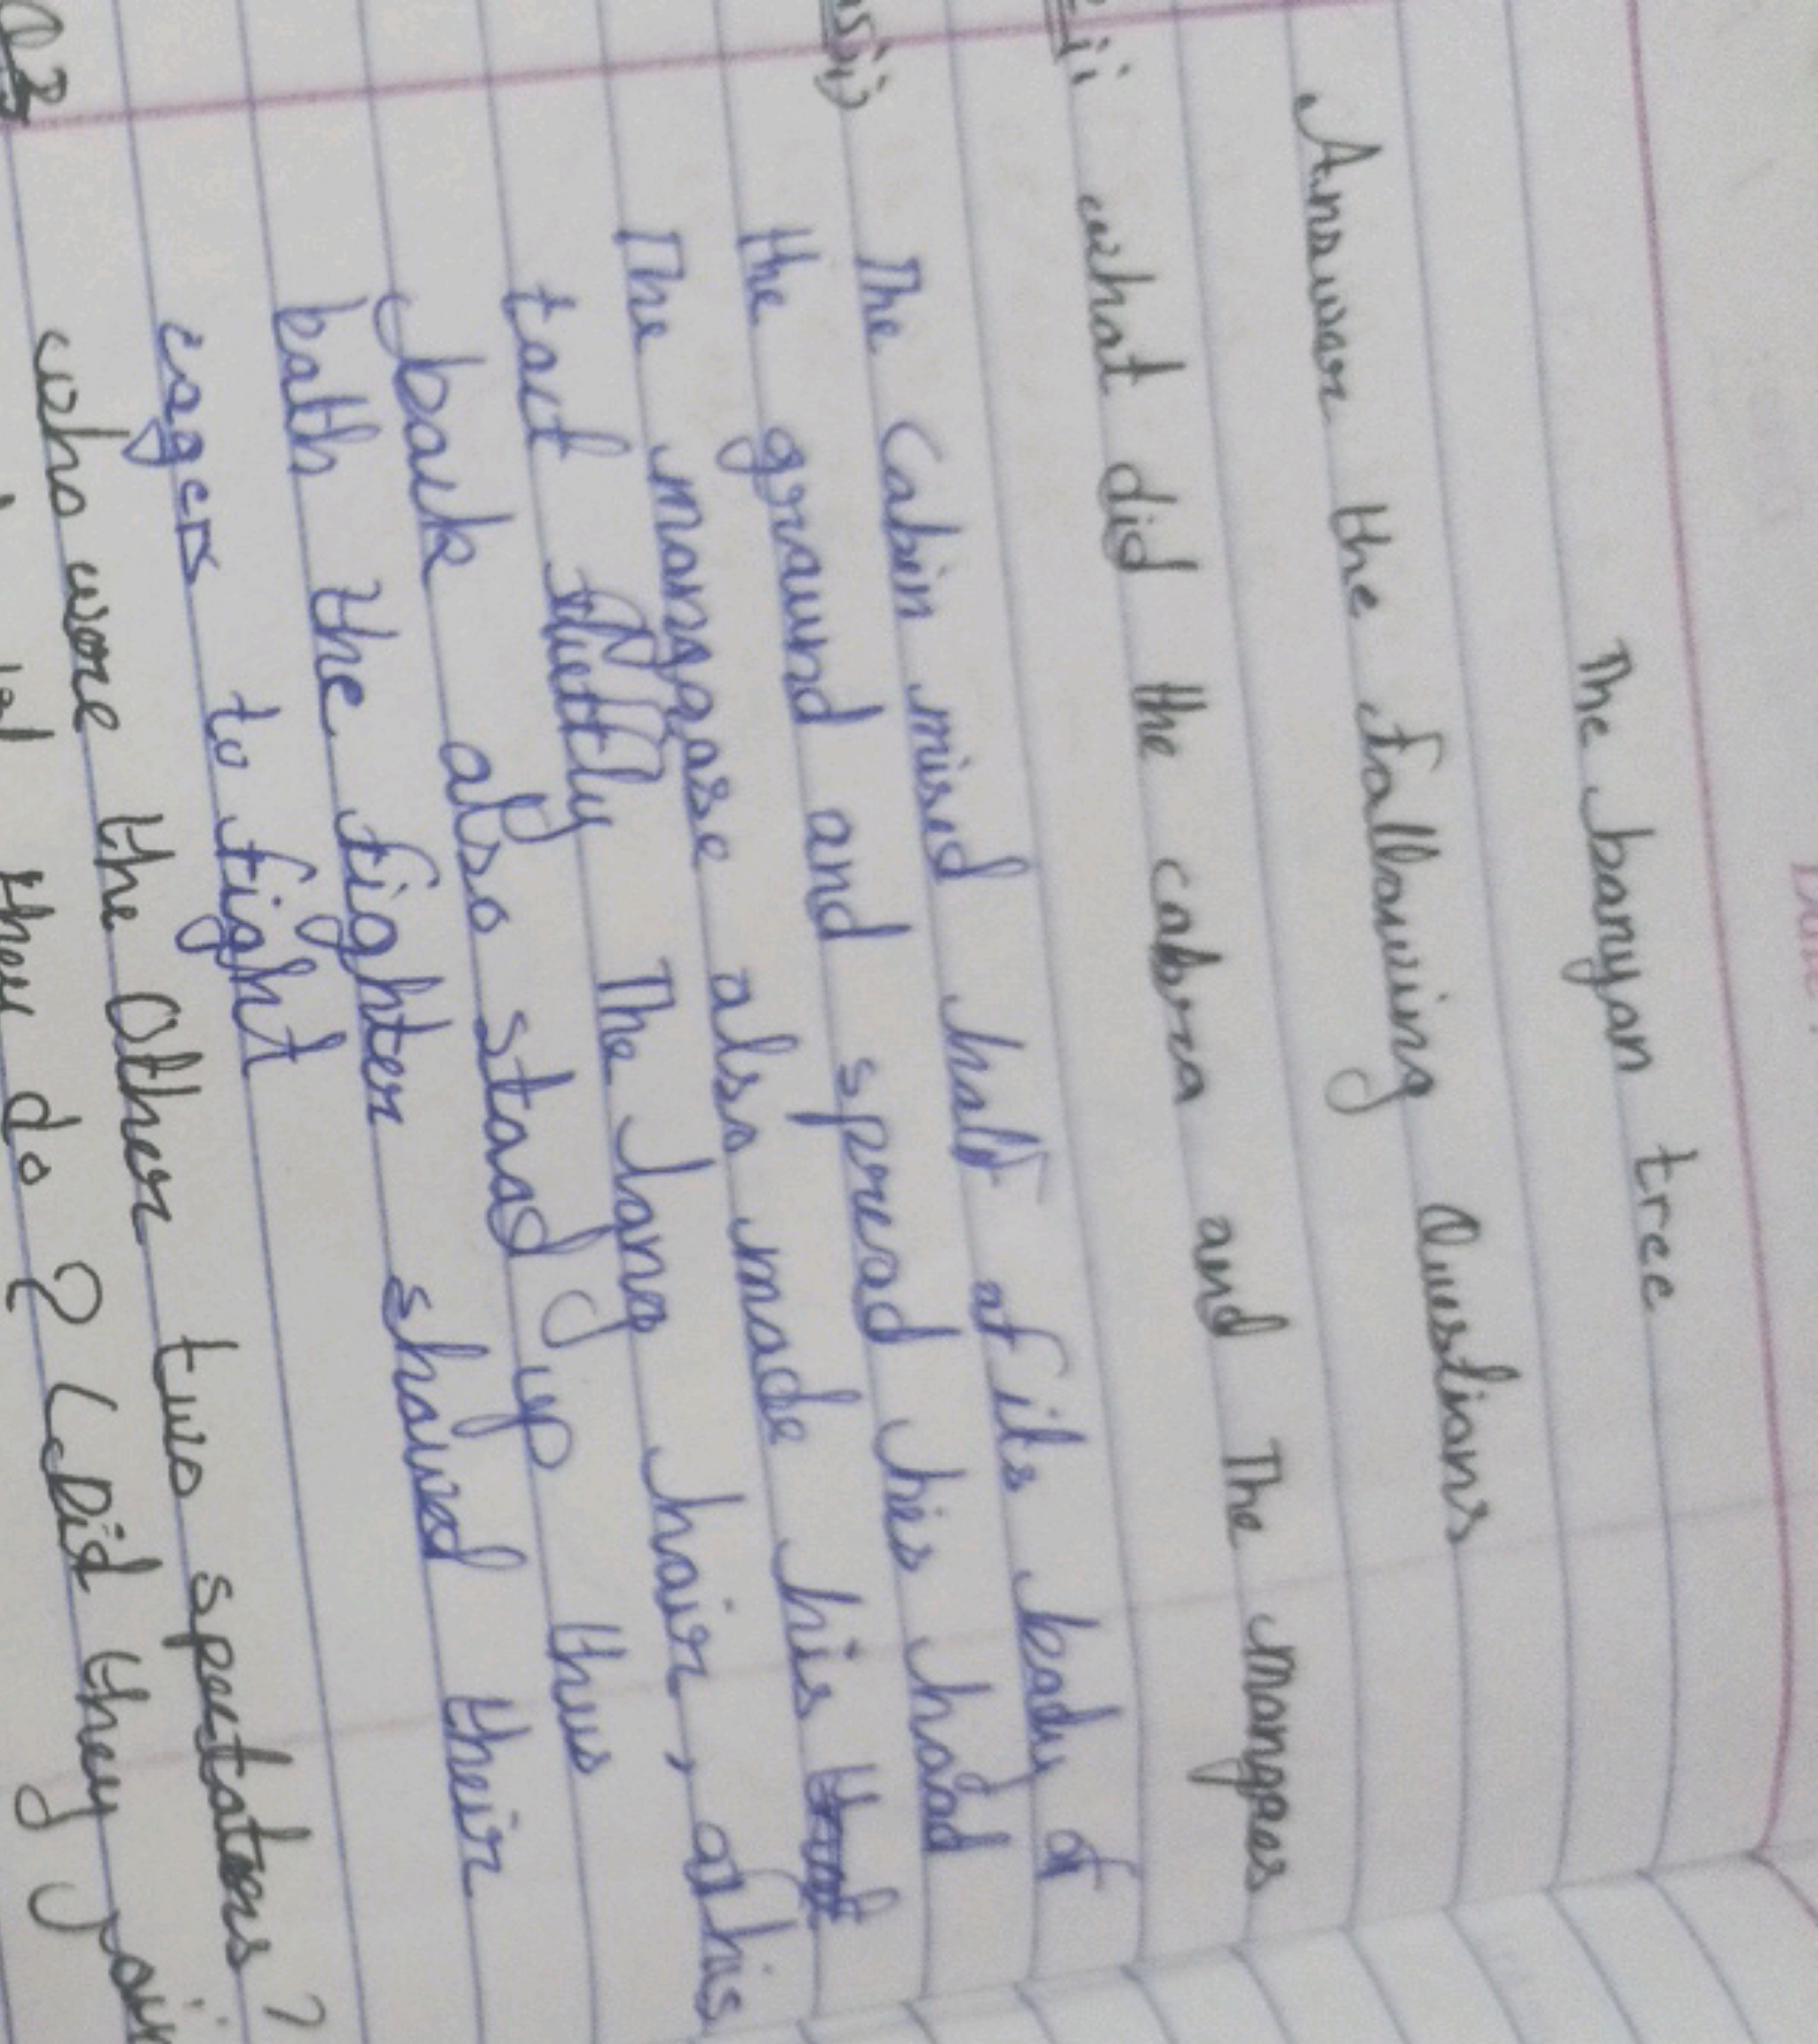 The banyan tree
Answer the following Questions
ii what did the cobra and The mongoes
The Cabin mised half of its body of
the ground and spread his hood
The monggose also made his
tact The long hair, of his
back also stood up thus
both the fighter showed their
eagers to fight
who were the Other two spectators?
they do? (Did they